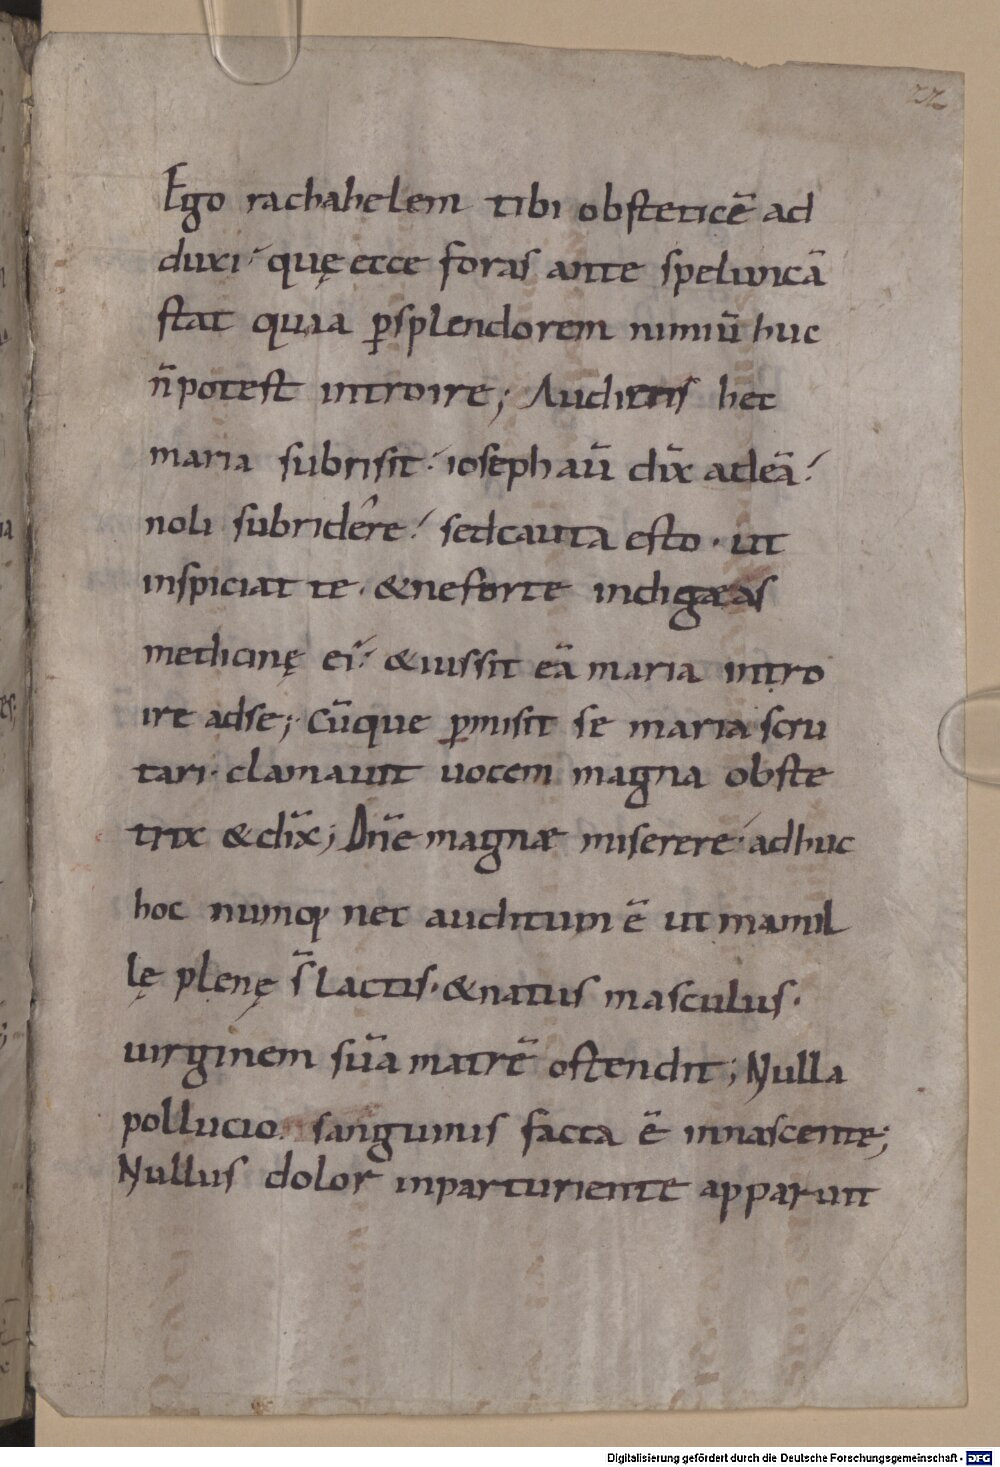 22
Ego rachahelem tibi obsteticē ad
duxi· quę ecce foras ante speluncā
stat quia p̱splendorem nimiū huc
n̄potest introire; Auditis hec
maria subrisit· ioseph aū dix̄ adeā·
noli subridêre· sedcauta esto· ut
inspiciat te· &neforte indigæas
medicinę ei· &iussit eā maria intro
ire adse; Cūque p̱misit se maria scru
tari· clamauit uocem magna obste
trix &dix̄; Dn̄e magnæ miserere· adhuc
hoc numqꝫ nec auditum ē ut mamil
lę plenę s̄ lactis· &natus masculus·
uirginem sūa matrē ostendit; Nulla
pollucio sanguinis facta ē innascente;
Nullus dolor inparturiente apparuit
Digitalisierung gefördert durch die Deutsche Forschungsgemeinschaft - DFG